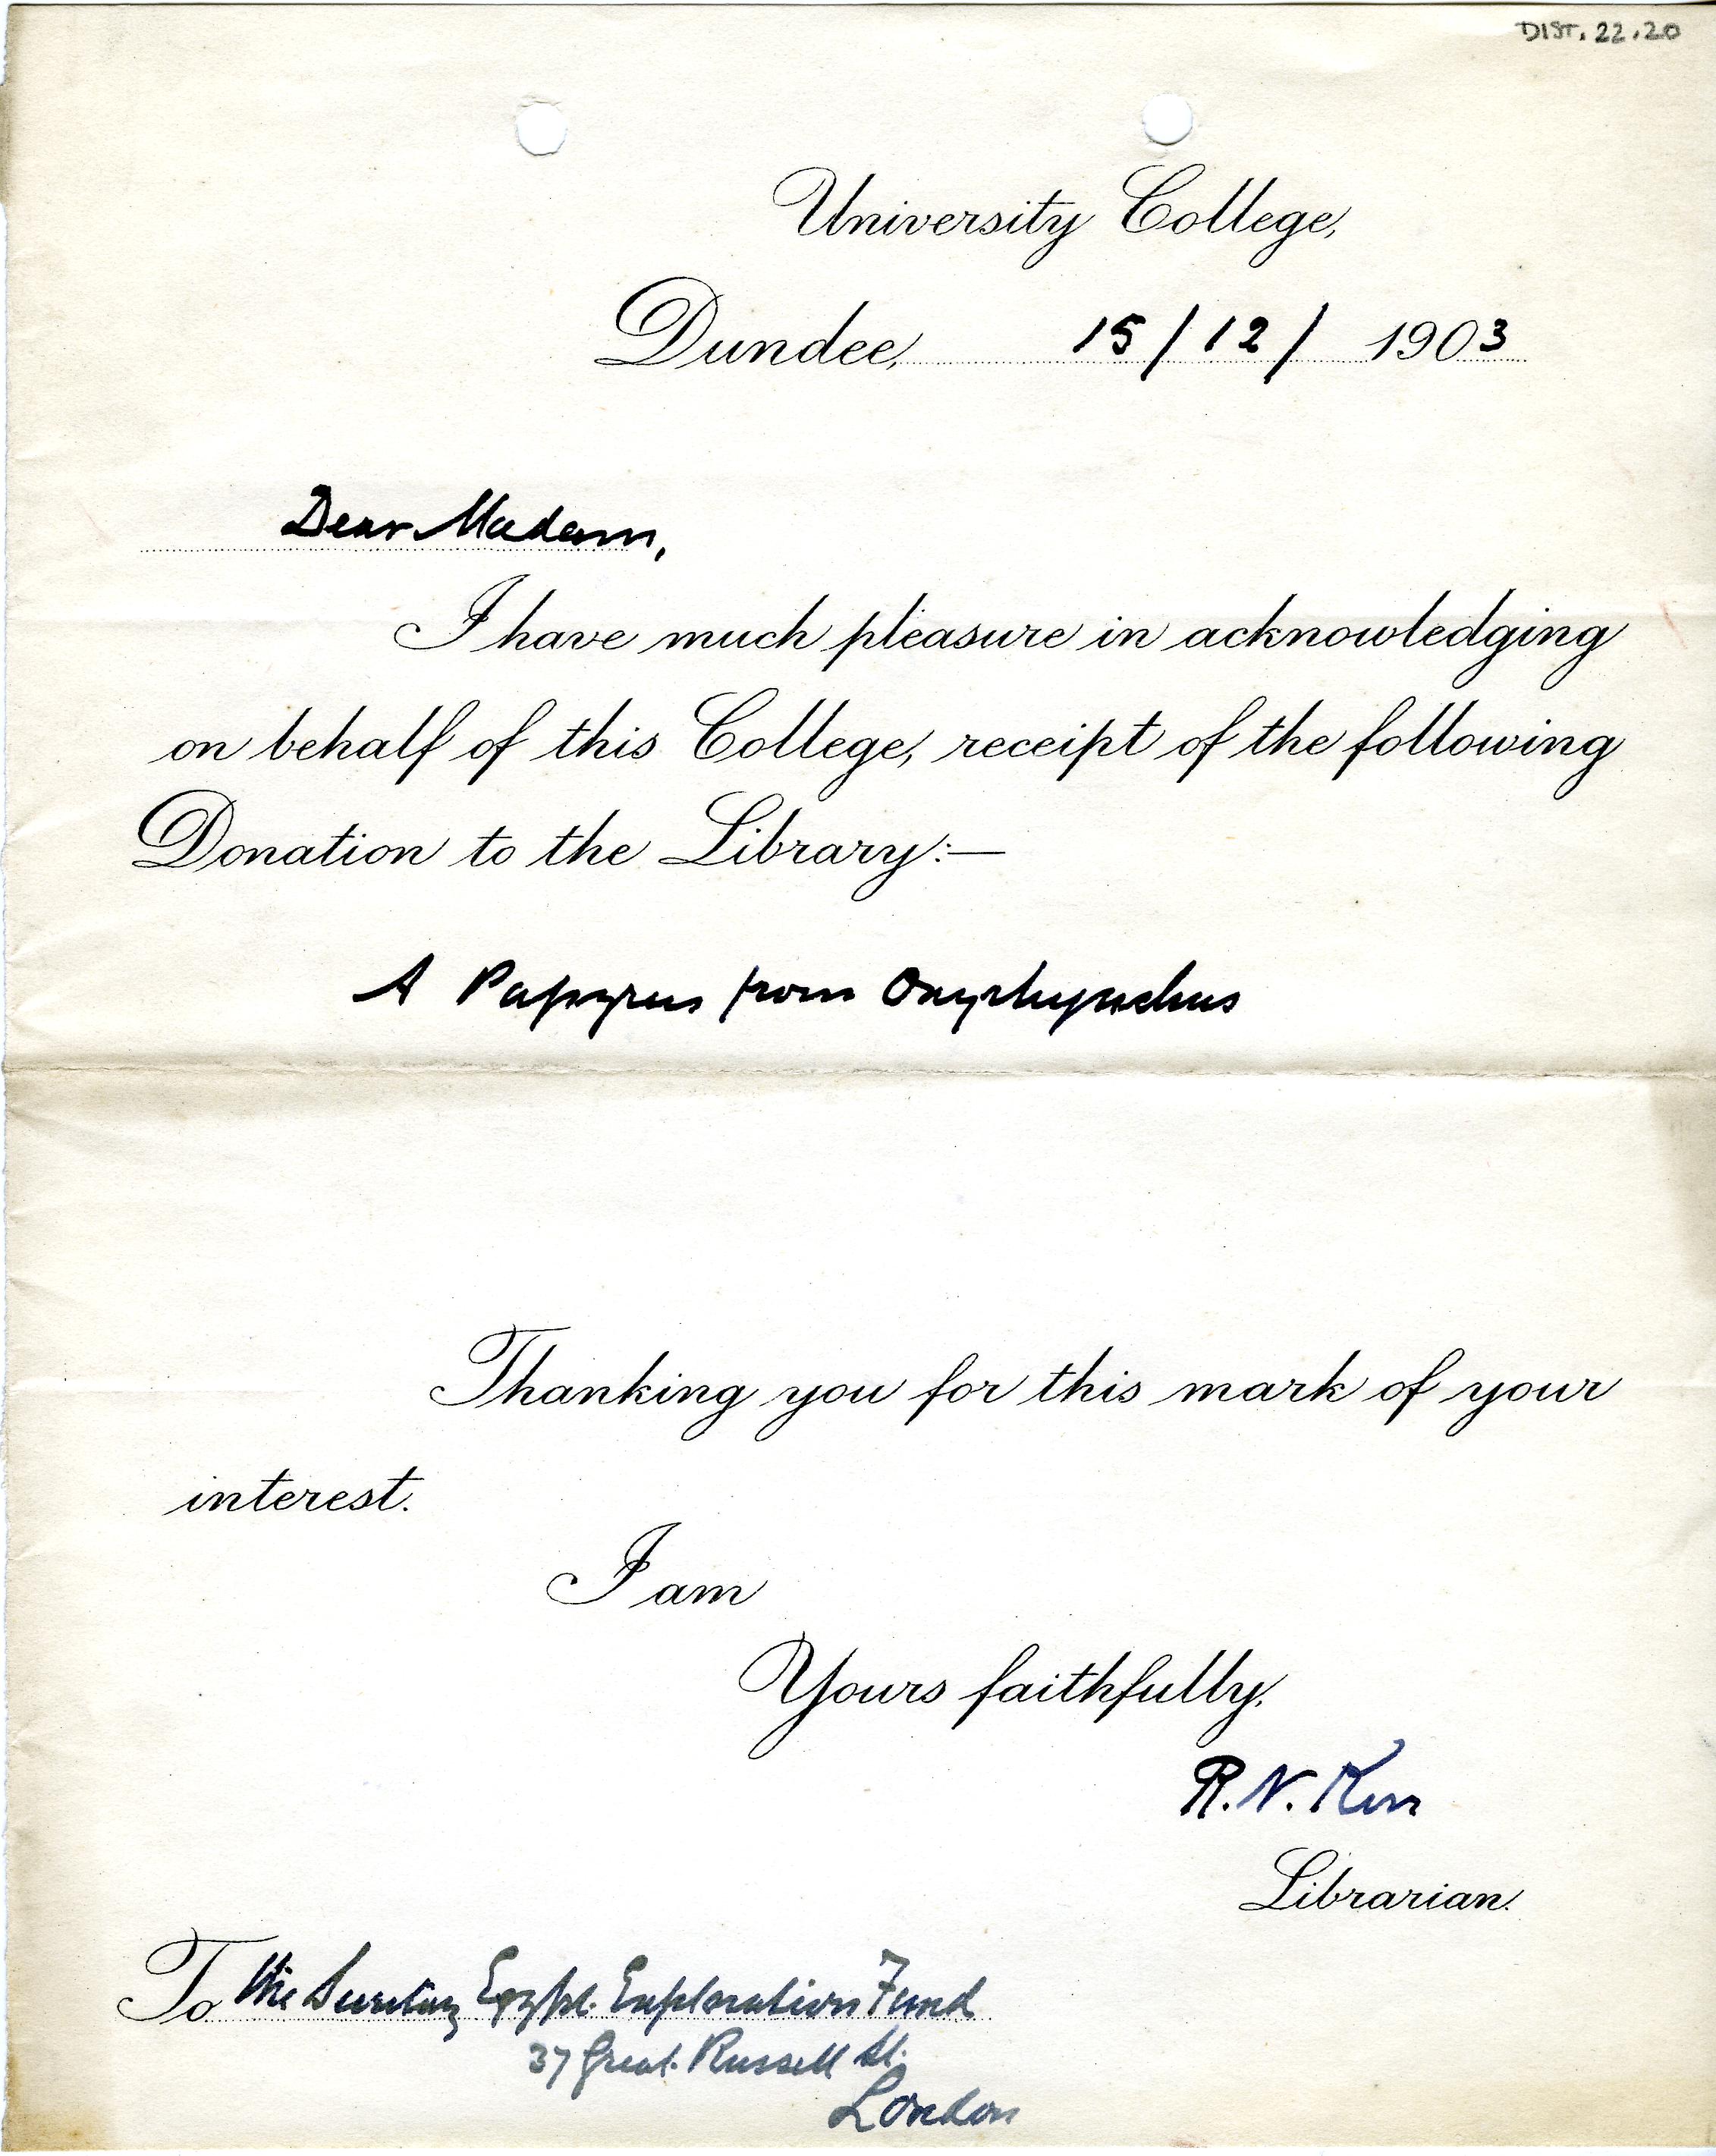 DIST. 22.20
University College,
Dundee, 15/12/ 1903
Dear Madam,
I have much pleasure in acknowledging
on behalf of this College, receipt of the following
Donation to the Library:—
A Papyrus from Oxyrhynchus
Thanking you for this mark of your
interest.
I am
Yours faithfully,
R. N. Kerr
Librarian.
To the Secretary Egypt. Exploration Fund
37 Great Russell St.
London